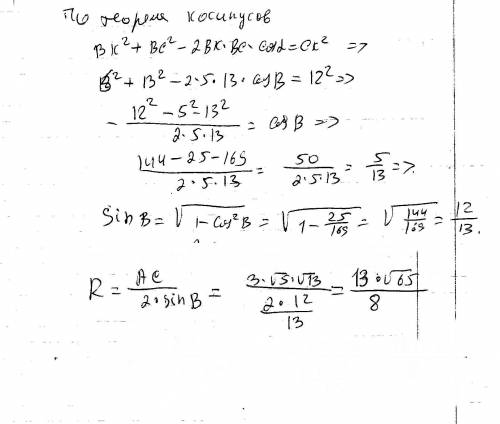 По теореме косинусов
BK² + BC² - 2BK·BC·cosα = CK² =>
5² + 13² - 2·5·13·cosB = 12² =>
- (12² - 5² - 13²)/(2·5·13) = cosB =>
(144 - 25 - 169)/(2·5·13) = 50/(2·5·13) = 5/13 =>
SinB = √(1 - cos²B) = √(1 - 25/169) = √(144/169) = 12/13.
R = AC/(2·sinB) = (3·√5·√13)/(2·12/13) = (13·√65)/8